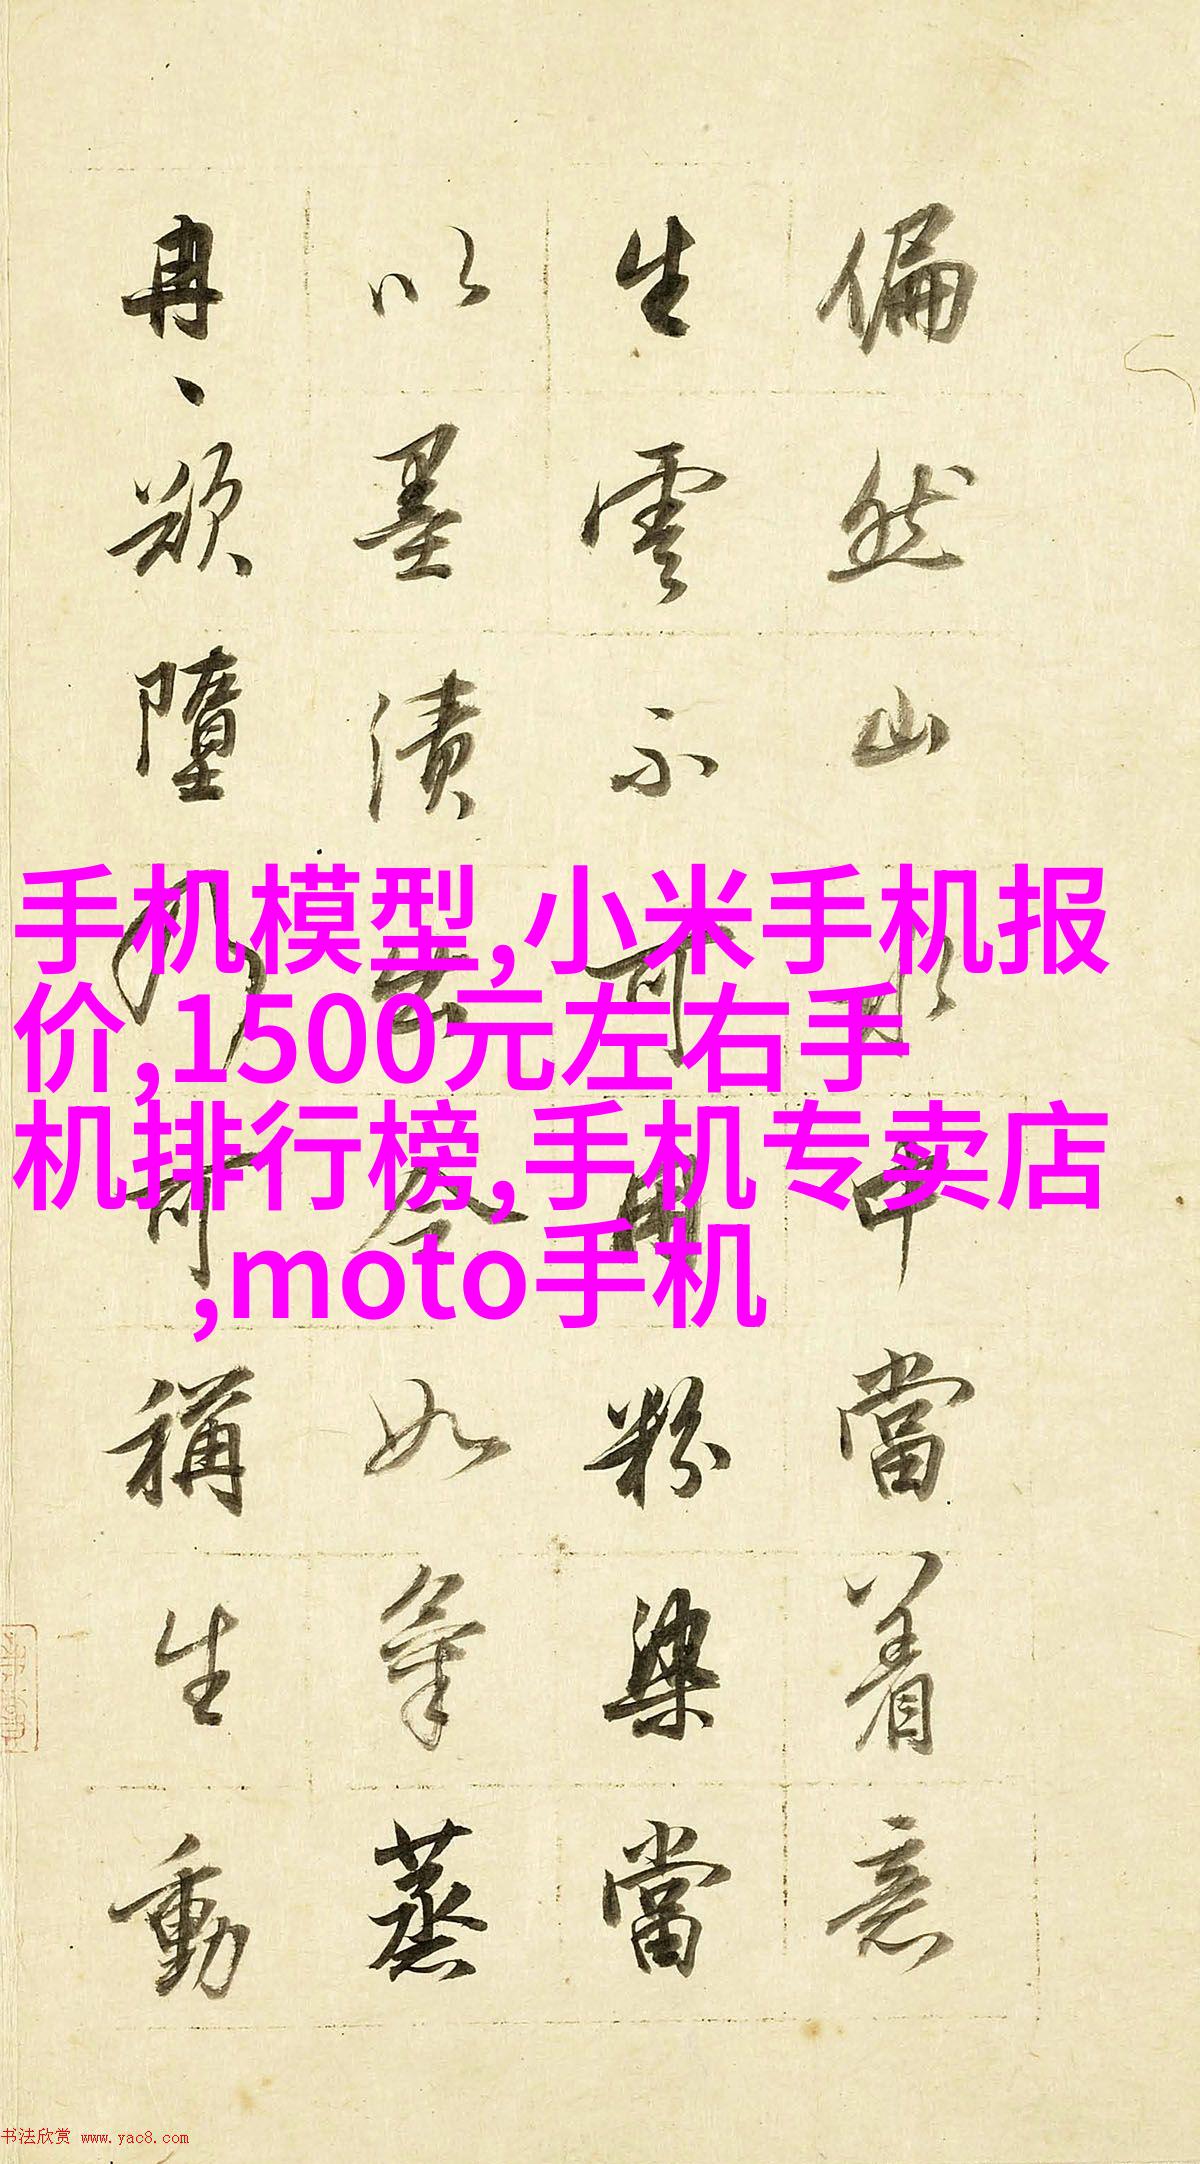 偏然山水中當着意
生雲不可用粉染當
以墨漬出令如氣蒸
冉、欲墮乃可稱生動
手机模型,小米手机报
价,1500元左右手
机排行榜,手机专卖店
,moto手机
书法欣赏 www.yac8.com